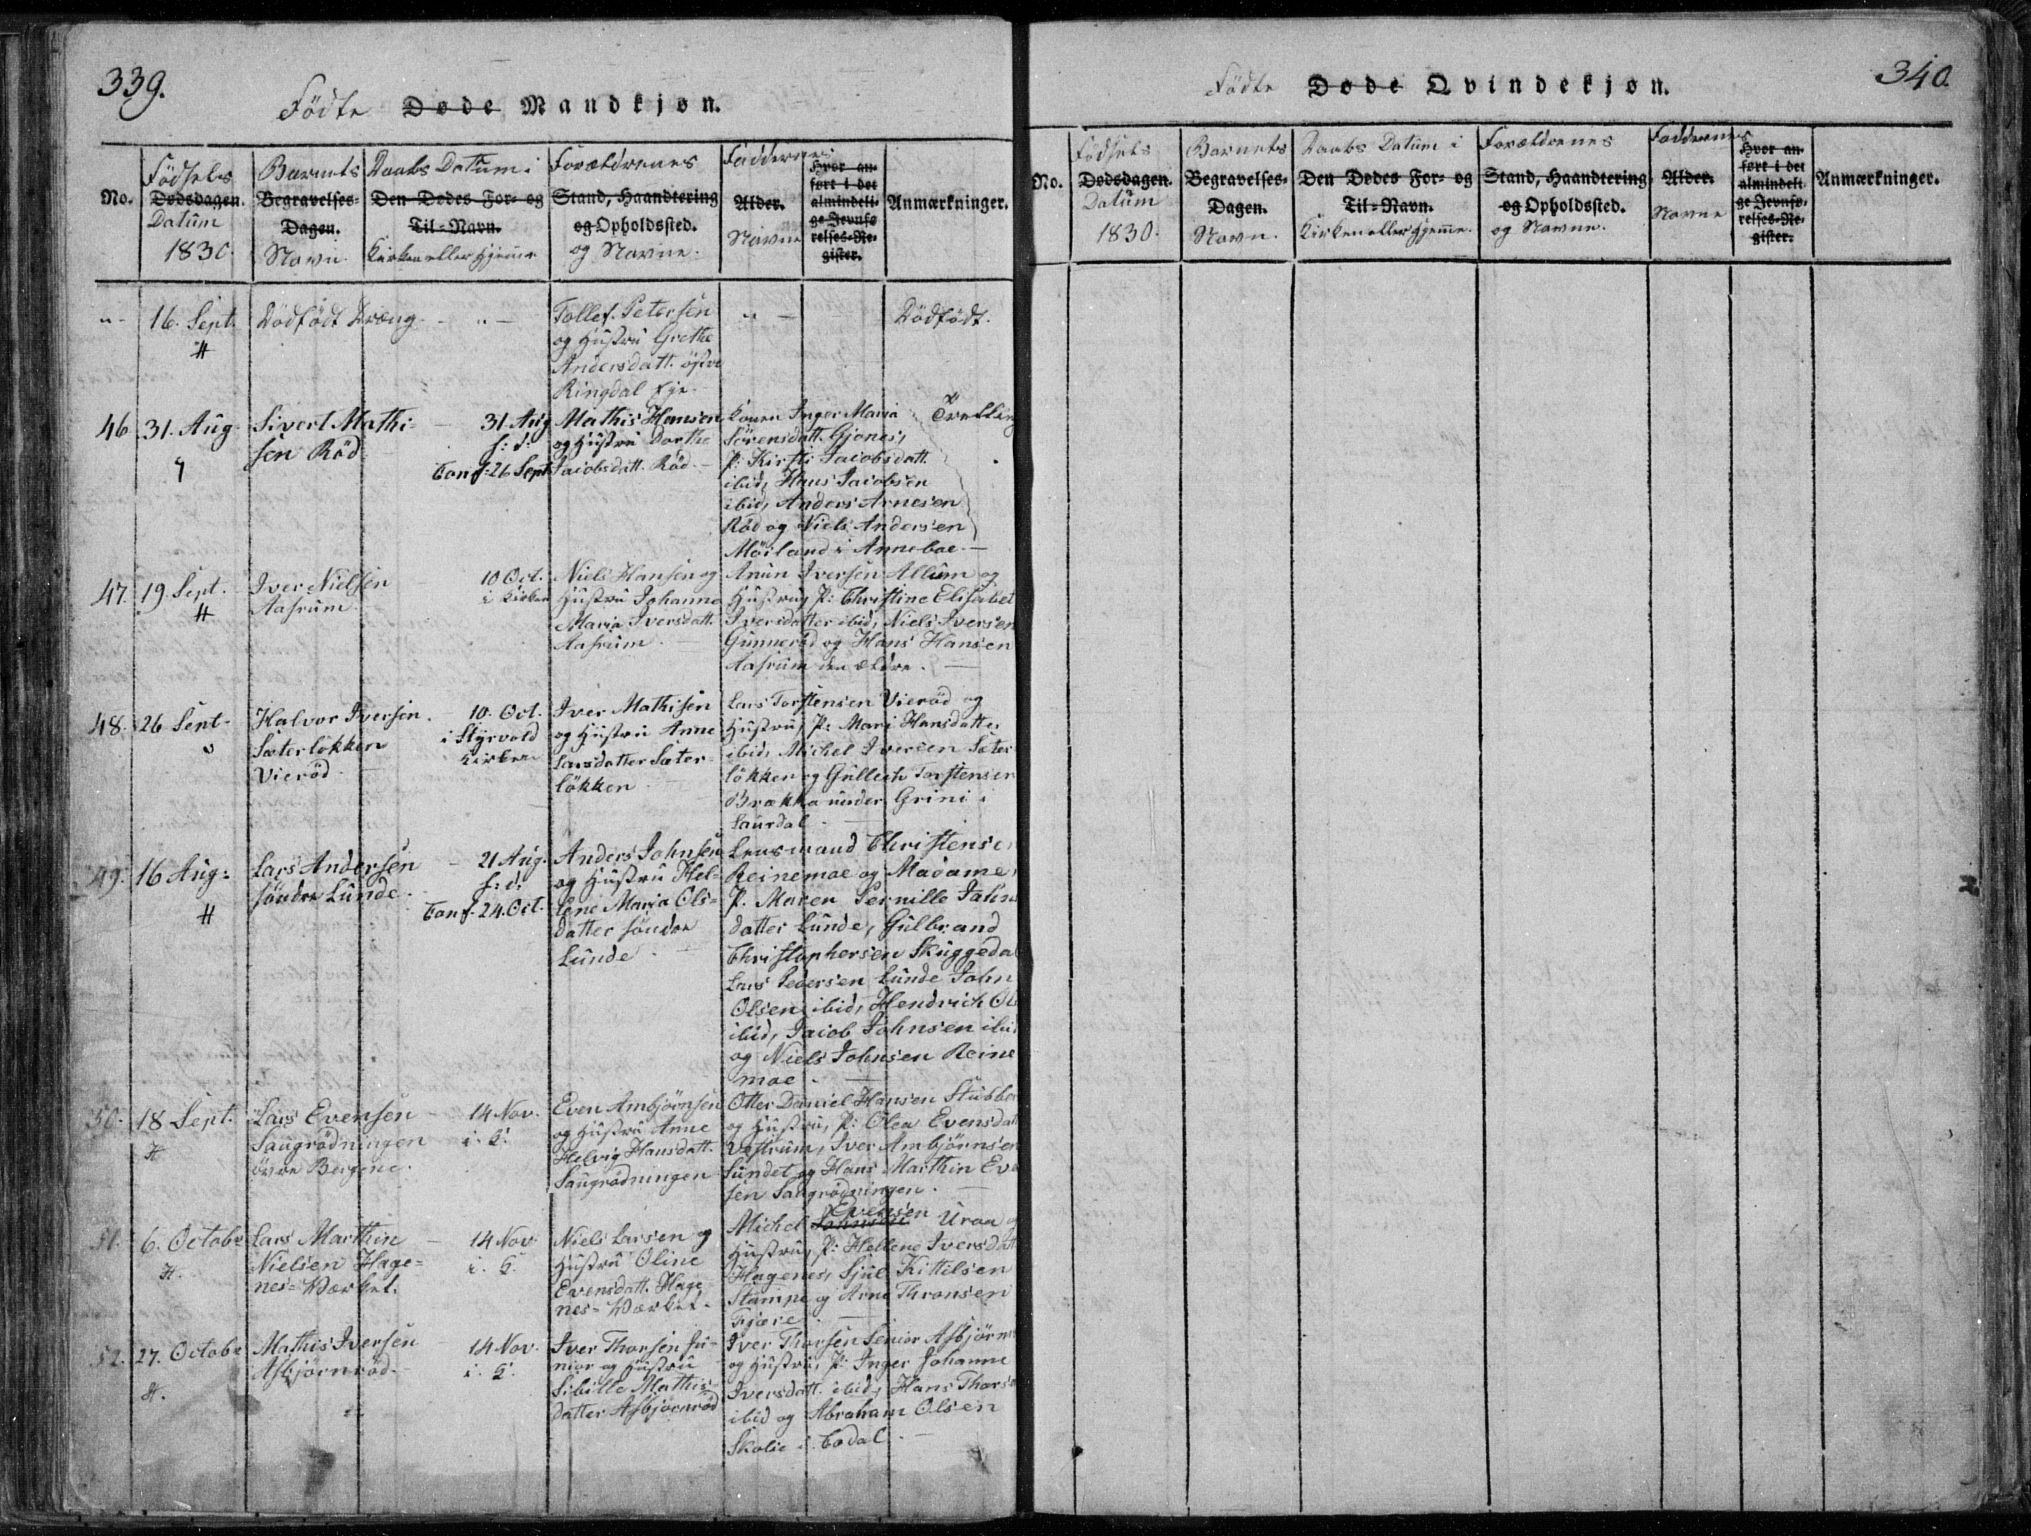 339.
Födte Døde Mandkjøn.
No.
Födsels
Dødsdagen.
Datum
1830.
Barnets
Begravelses-
Dagen.
Navn
Daabs Datum i
Den Dødes For- og
Til-Navn.
Kirken eller Hjemme
Forældrenes
Stand, Haandtering
og Opholdssted.
og Navne.
Faddernes
Alder.
Navne
Hvor an-
ført i det
almindeli-
ge Jevnfø-
relses-Re-
gister.
Anmærkninger.
" 16. Sept. Dödfödt Dreng - " -
Tollef Petersen
og Hustru Grethe
Andersdatt. östre
Ringdal Eje.
" -
Dödfödt.
46 31. Aug.
Sivert Mathi-
sen Röd
31 Aug
h: d:
Conf: 26 Sept
Mathis Hansen
og Hustru Dorthe
Jacobsdatt. Röd.
Konen Inger Maria
Sörensdatt. Gjones,
P: Kirsti Jacobsdatt.
ibid, Hans Jacobsen
ibid, Anders Arnesen
Röd og Niels Andersen
Möiland i Anneboe.
Tvelling
47. 19. Sept.
Iver Nielsen
Aasrum
10 Oct.
i Kirken
Niels Hansen og
Hustru Johanne
Maria Iversdatt.
Aasrum
Anun Iversen Allum og
Hustru, P: Christine Elisabet
Iversdatter ibid, Niels Iversen
Gunneröd og Hans Hansen
Aasrum den ældre.
48. 26 Sept.
Halvor Iversen
Sæterlökken
Vieröd
10. Oct.
i Styrvold
Kirken
Iver Mathisen
og Hustru Anne
Larsdatter Sæter-
lökken
Lars Torstensen Vieröd og
Hustru, P: Mari Hansdatter
ibid, Michel Iversen Sæter
lökken og Gullich Torstensen
Brække under Grini i
Saurdal
49. 16 Aug:
Lars Andersen
söndre Lunde
21 Aug.
h: d:
Conf. 24. Oct.
Anders Johnsen
og Hustru Hel-
lene Maria Ols-
datter söndre
Lunde
Lensmand Christense
Reinemoe og Madame,
P. Maren Pernille John
datter Lunde, Gulbrand
Christophersen Skuggedal
Lars Pedersen Lunde John
Olsen ibid, Hendrich Ol
ibid, Jacob Johnsen ibid
og Niels Johnsen Reine
moe
50. 18 Sept.
Lars Evensen
Saugrödningen
övre Bergene.
14 Nov.
i. K.
Even Ambjörnsen
og Hustru Anne
Helvig Hansdatt.
Saugrödningen
Otter Daniel Hansen Stubbe
og Hustru, P: Olea Evensdat
Vestrum, Iver Ambjörnsen
Sundet og Hans Marthin Eve
sen Saugrödningen.
51. 6. Octobr
Lars Marthin
Nielsen Hage-
nes-Værket.
14 Nov.
i. K.
Niels Larsen og
Hustru Oline
Evensdatt. Hage
nes-Værket.
Evensen
Michel Johnsen Uraa og
Hustru, P: Hellene Iversdatt
Hagenes, Sjul Kittilsen
Stampe og Arne Thronsen
Fjære
52. 27. Octobr
Mathis Iversen
Asbjörnröd.
14 Nov.
i. K.
Iver Thorsen Ju-
nior og Hustru
Sibille Mathis-
datter Asbjörnröd
Iver Thorsen Senior Asbjörn
og Hustru, P: Inger Johanne
Iversdatt. ibid, Hans Thors
ibid og Abraham Olsen
Skolie i Codal
340.
Födte Døde Qvindekjøn.
No.
Födsels
Dødsdagen.
Datum
1830.
Barnets
Begravelses-
Dagen.
Navn.
Daabs Datum i
Den Dødes For- og
Til-Navn.
Kirken eller Hjemme.
Forældrenes
Stand, Haandtering
og Opholdssted.
og Navne.
Faddernes
Alder.
Navne
Hvor an-
ført i det
almindeli-
ge Jevnfø-
relses-Re-
gister.
Anmærkninger.